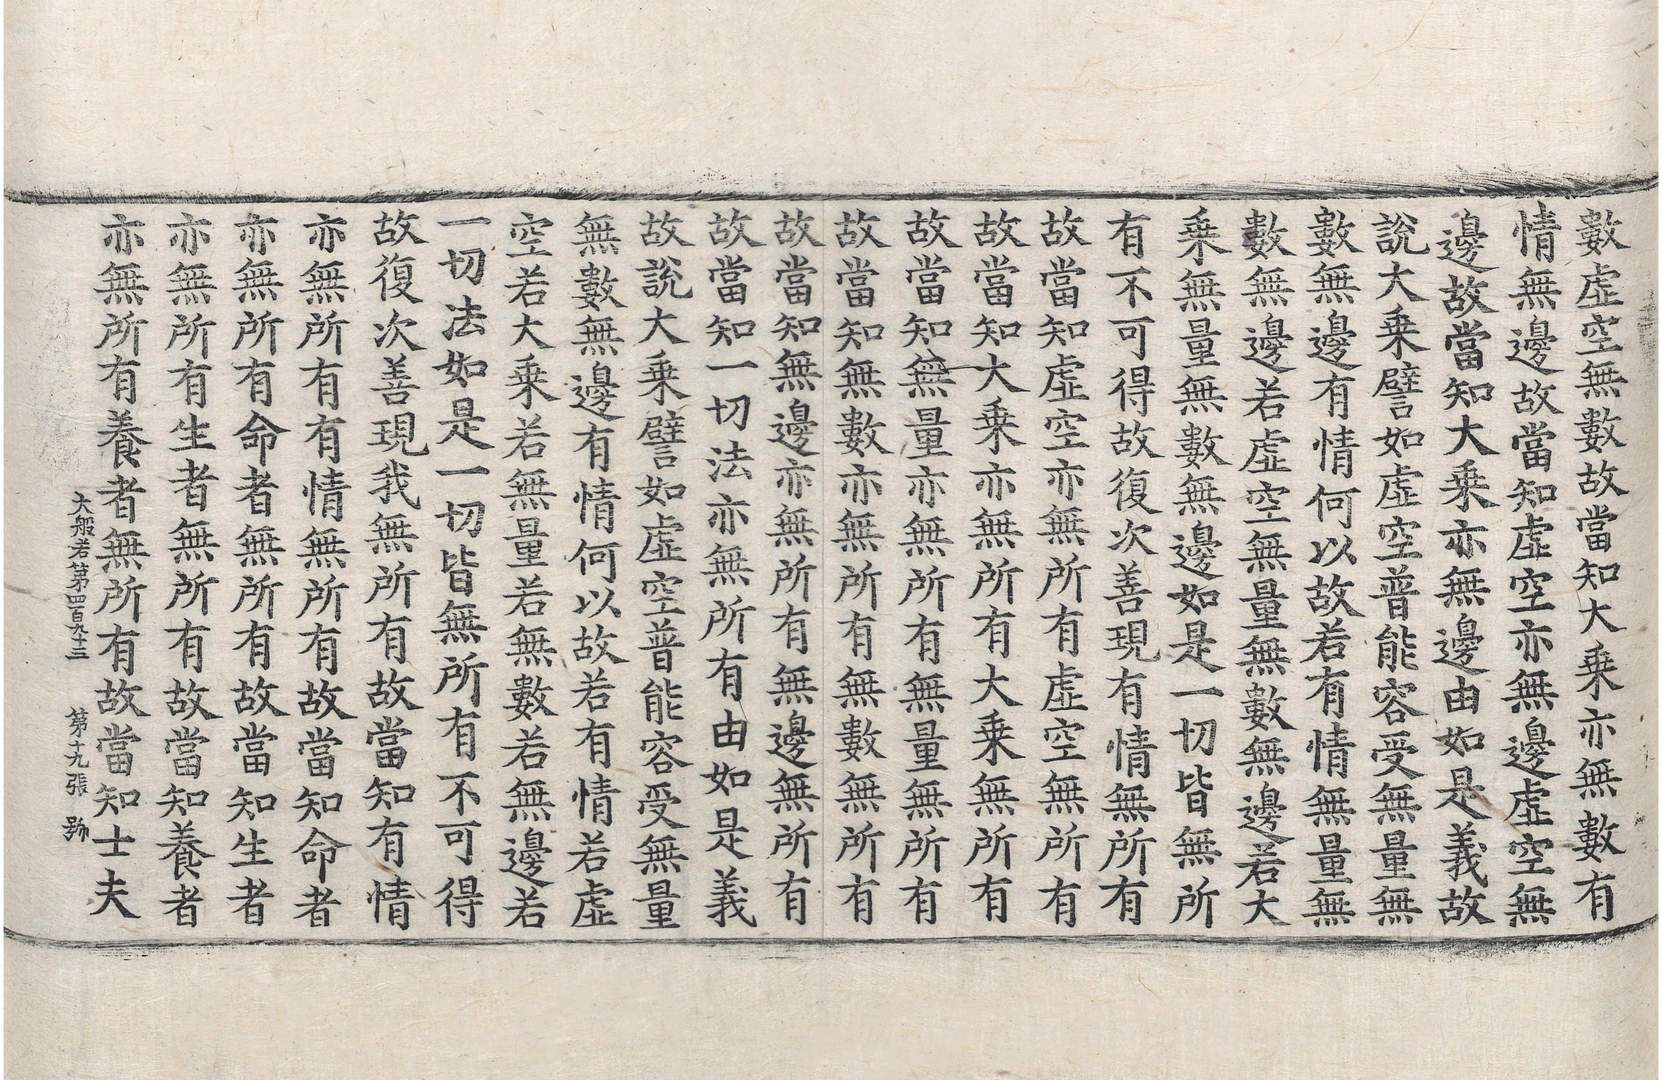 數虛空無數故當知大乘亦無數有
情無邊故當知虛空亦無邊虛空無
邊故當知大乘亦無邊由如是義故
說大乘譬如虛空普能容受無量無
數無邊有情何以故若有情無量無
數無邊若虛空無量無數無邊若大
乘無量無數無邊如是一切皆無所
有不可得故復次善現有情無所有
故當知虛空亦無所有虛空無所有
故當知大乘亦無所有大乘無所有
故當知無量亦無所有無量無所有
故當知無數亦無所有無數無所有
故當知無邊亦無所有無邊無所有
故當知一切法亦無所有由如是義
故說大乘譬如虛空普能容受無量
無數無邊有情何以故若有情若虛
空若大乘若無量若無數若無邊若
一切法如是一切皆無所有不可得
故復次善現我無所有故當知有情
亦無所有有情無所有故當知命者
亦無所有命者無所有故當知生者
亦無所有生者無所有故當知養者
亦無所有養者無所有故當知士夫
大般若第四百九十三 第十九張 號